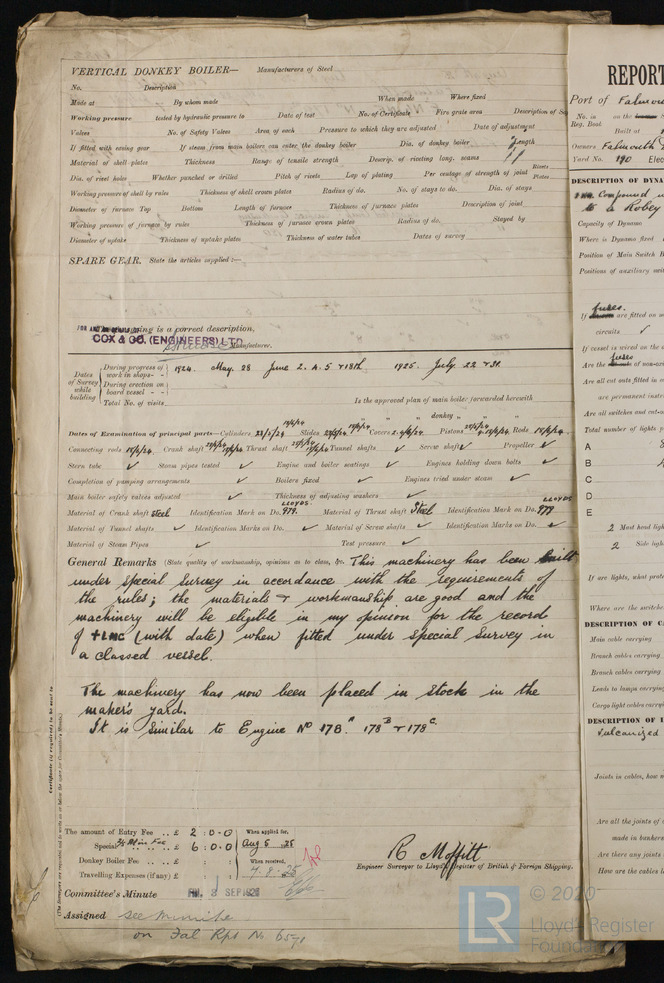 VERTICAL DONKEY BOILER— Manufacturers of Steel
No. Description
Made at By whom made When made Where fixed
Working pressure tested by hydraulic pressure to Date of test No. of Certificate Fire grate area Description of
Valves No. of Safety Valves Area of each Pressure to which they are adjusted Date of adjustment
If fitted with easing gear If steam from main boilers can enter the donkey boiler Dia. of donkey boiler Length
Material of shell plates Thickness Range of tensile strength Descrip. of riveting long. seams
Dia. of rivet holes Whether punched or drilled Pitch of rivets Lap of plating Per centage of strength of joint Rivets Plates
Working pressure of shell by rules Thickness of shell crown plates Radius of do. No. of stays to do. Dia. of stays
Diameter of furnace Top Bottom Length of furnace Thickness of furnace plates Description of joint
Working pressure of furnace by rules Thickness of furnace crown plates Radius of do. Stayed by
Diameter of uptake Thickness of uptake plates Thickness of water tubes Dates of survey
SPARE GEAR. State the articles supplied :—
is a correct description,
COX & CO. (ENGINEERS) LTD. Manufacturer.
Dates of Survey while building
During progress of work in shops- - 1924. May. 28 June 2. 4. 5 & 18th. 1925. July. 22 & 31.
During erection on board vessel - -
Total No. of visits
Is the approved plan of main boiler forwarded herewith
" " " donkey " " "
Dates of Examination of principal parts—Cylinders Slides Covers Pistons Rods
Connecting rods Crank shaft Thrust shaft Tunnel shafts ✓ Screw shaft ✓ Propeller ✓
Stern tube ✓ Steam pipes tested ✓ Engine and boiler seatings ✓ Engines holding down bolts ✓
Completion of pumping arrangements ✓ Boilers fixed ✓ Engines tried under steam ✓
Main boiler safety valves adjusted ✓ Thickness of adjusting washers ✓
Material of Crank shaft Steel Identification Mark on Do. LLOYDS 979. Material of Thrust shaft Steel Identification Mark on Do. LLOYDS 979
Material of Tunnel shafts ✓ Identification Marks on Do. ✓ Material of Screw shafts ✓ Identification Marks on Do. ✓
Material of Steam Pipes ✓ Test pressure ✓
General Remarks (State quality of workmanship, opinions as to class, &c. This machinery has been built
under special survey in accordance with the requirements of
the rules; the materials & workmanship are good and the
machinery will be eligible in my opinion for the record
of +LMC (with date) when fitted under special survey in
a classed vessel.
The machinery has now been placed in stock in the
maker's yard.
It is similar to Engine No 178A 178B & 178C.
Certificate (if required) to be sent to
The amount of Entry Fee .. £ 2 : 0 . 0 When applied for,
Special £ 6 : 0 . 0 Aug 5 .25
Donkey Boiler Fee .. .. £ : : When received,
Travelling Expenses (if any) £ : : 7. 8. 25
R Moffitt
Engineer Surveyor to Lloyd's Register of British & Foreign Shipping.
Committee's Minute
Assigned see minute
on Fal Rpt No 6571
REPORT
Port of Falmouth
No. in Reg. Book on the
Built at
Owners Falmouth
Yard No. 190 Elec
DESCRIPTION OF DYNA
Compound
a Robey
Capacity of Dynamo
Where is Dynamo fixed
Position of Main Switch B
Positions of auxiliary swit
If fuses. are fitted on
circuits ✓
If vessel is wired on the
Are the fuses of non-
Are all cut outs fitted in
are permanent inst
Are all switches and cut-
Total number of lights
A
B
C
D
E
2 Mast head ligh
2 Side ligh
If arc lights, what prot
Where are the switche
DESCRIPTION OF CA
Main cable carrying
Branch cables carrying
Branch cables carrying
Leads to lamps carrying
Cargo light cables carryin
DESCRIPTION OF I
Vulcanized
Joints in cables, how
Are all the joints of
made in bunkers
Are there any joints
How are the cables
© 2020
Lloyd's Register
Foundation
LR